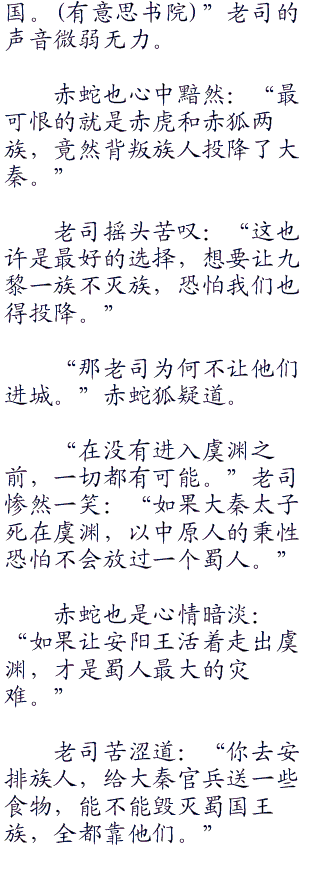 国。(有意思书院)”老司的
声音微弱无力。
赤蛇也心中黯然：“最
可恨的就是赤虎和赤狐两
族，竟然背叛族人投降了大
秦。”
老司摇头苦叹：“这也
许是最好的选择，想要让九
黎一族不灭族，恐怕我们也
得投降。”
“那老司为何不让他们
进城。”赤蛇狐疑道。
“在没有进入虞渊之
前，一切都有可能。”老司
惨然一笑：“如果大秦太子
死在虞渊，以中原人的秉性
恐怕不会放过一个蜀人。”
赤蛇也是心情暗淡：
“如果让安阳王活着走出虞
渊，才是蜀人最大的灾
难。”
老司苦涩道：“你去安
排族人，给大秦官兵送一些
食物，能不能毁灭蜀国王
族，全都靠他们。”